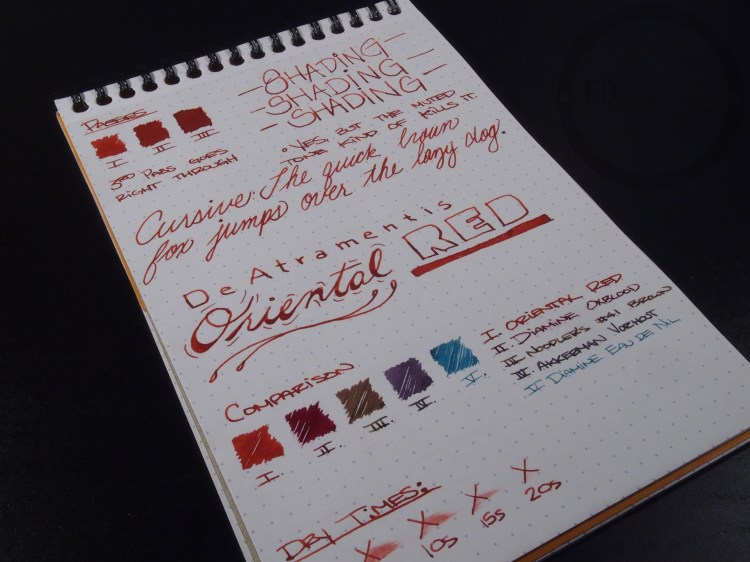 PASSES
I II III
3RD PASS GOES
RIGHT THROUGH
SHADING
SHADING
SHADING
• YES, BUT THE MUTED
TONE KIND OF KILLS IT
Cursive: The quick brown
fox jumps over the lazy dog.
De Atramentis
Oriental RED
COMPARISON
I. II. III. IV. V.
I. ORIENTAL RED
II. DIAMINE OXBLOOD
III NOODLER'S #41 BROWN
III. AKKERMAN VOORHOUT
IV DIAMINE EAU DE NIL
DRY TIMES:
10s 15s 20s